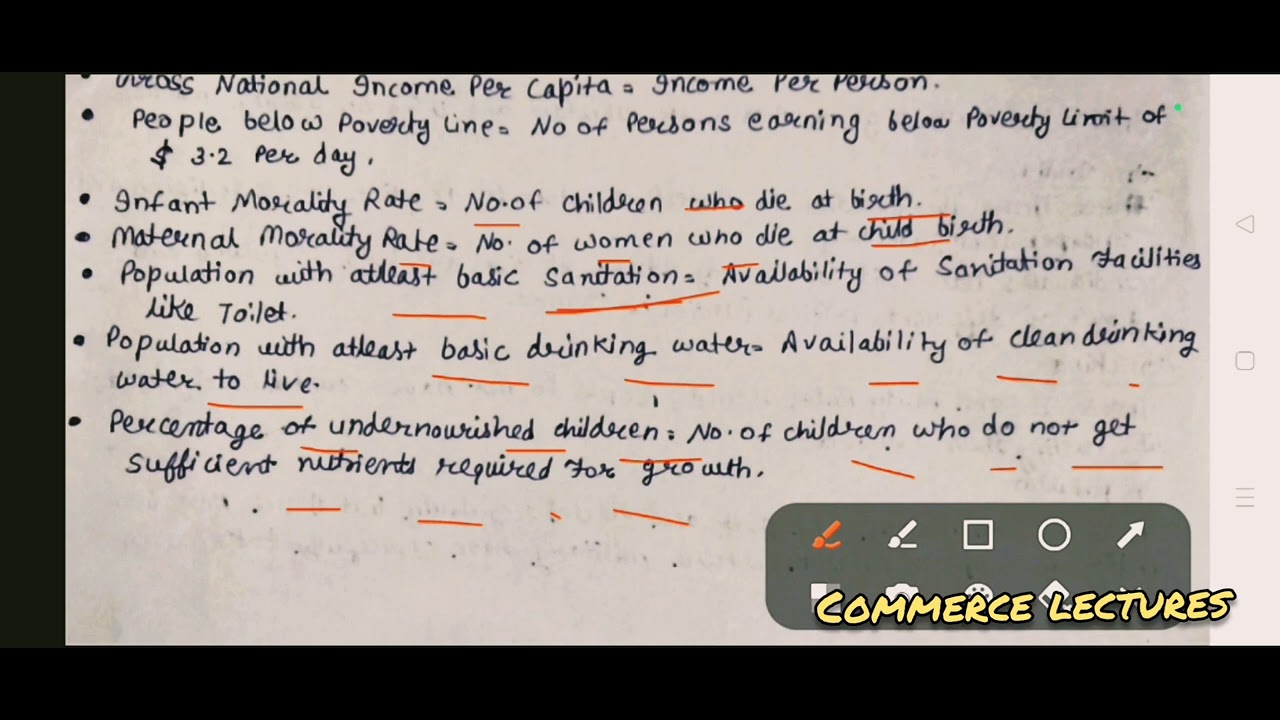 Gross National Income Per Capita = Income Per Person.
• People below Poverty Line = No of Persons earning below Poverty Limit of
$ 3.2 Per day.
• Infant Morality Rate = No. of children who die at birth.
• Maternal Morality Rate = No. of women who die at child birth.
• Population with atleast basic Sanitation = Availability of Sanitation facilities
like Toilet.
• Population with atleast basic drinking water = Availability of clean drinking
water to live.
• Percentage of undernourished children = No. of children who do not get
sufficient nutrients required for growth.
COMMERCE LECTURES